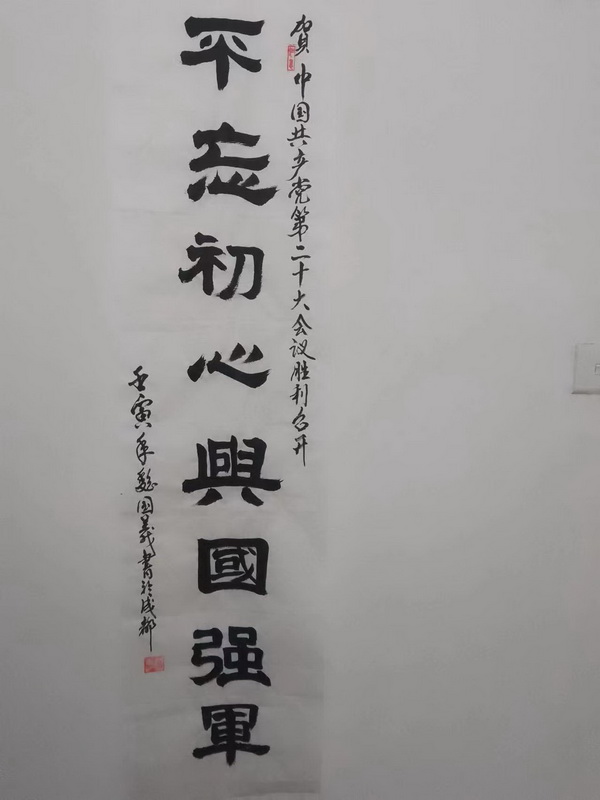 贺中国共产党第二十大会议胜利召开
平忘初心興國强軍
壬寅年国義書於成都